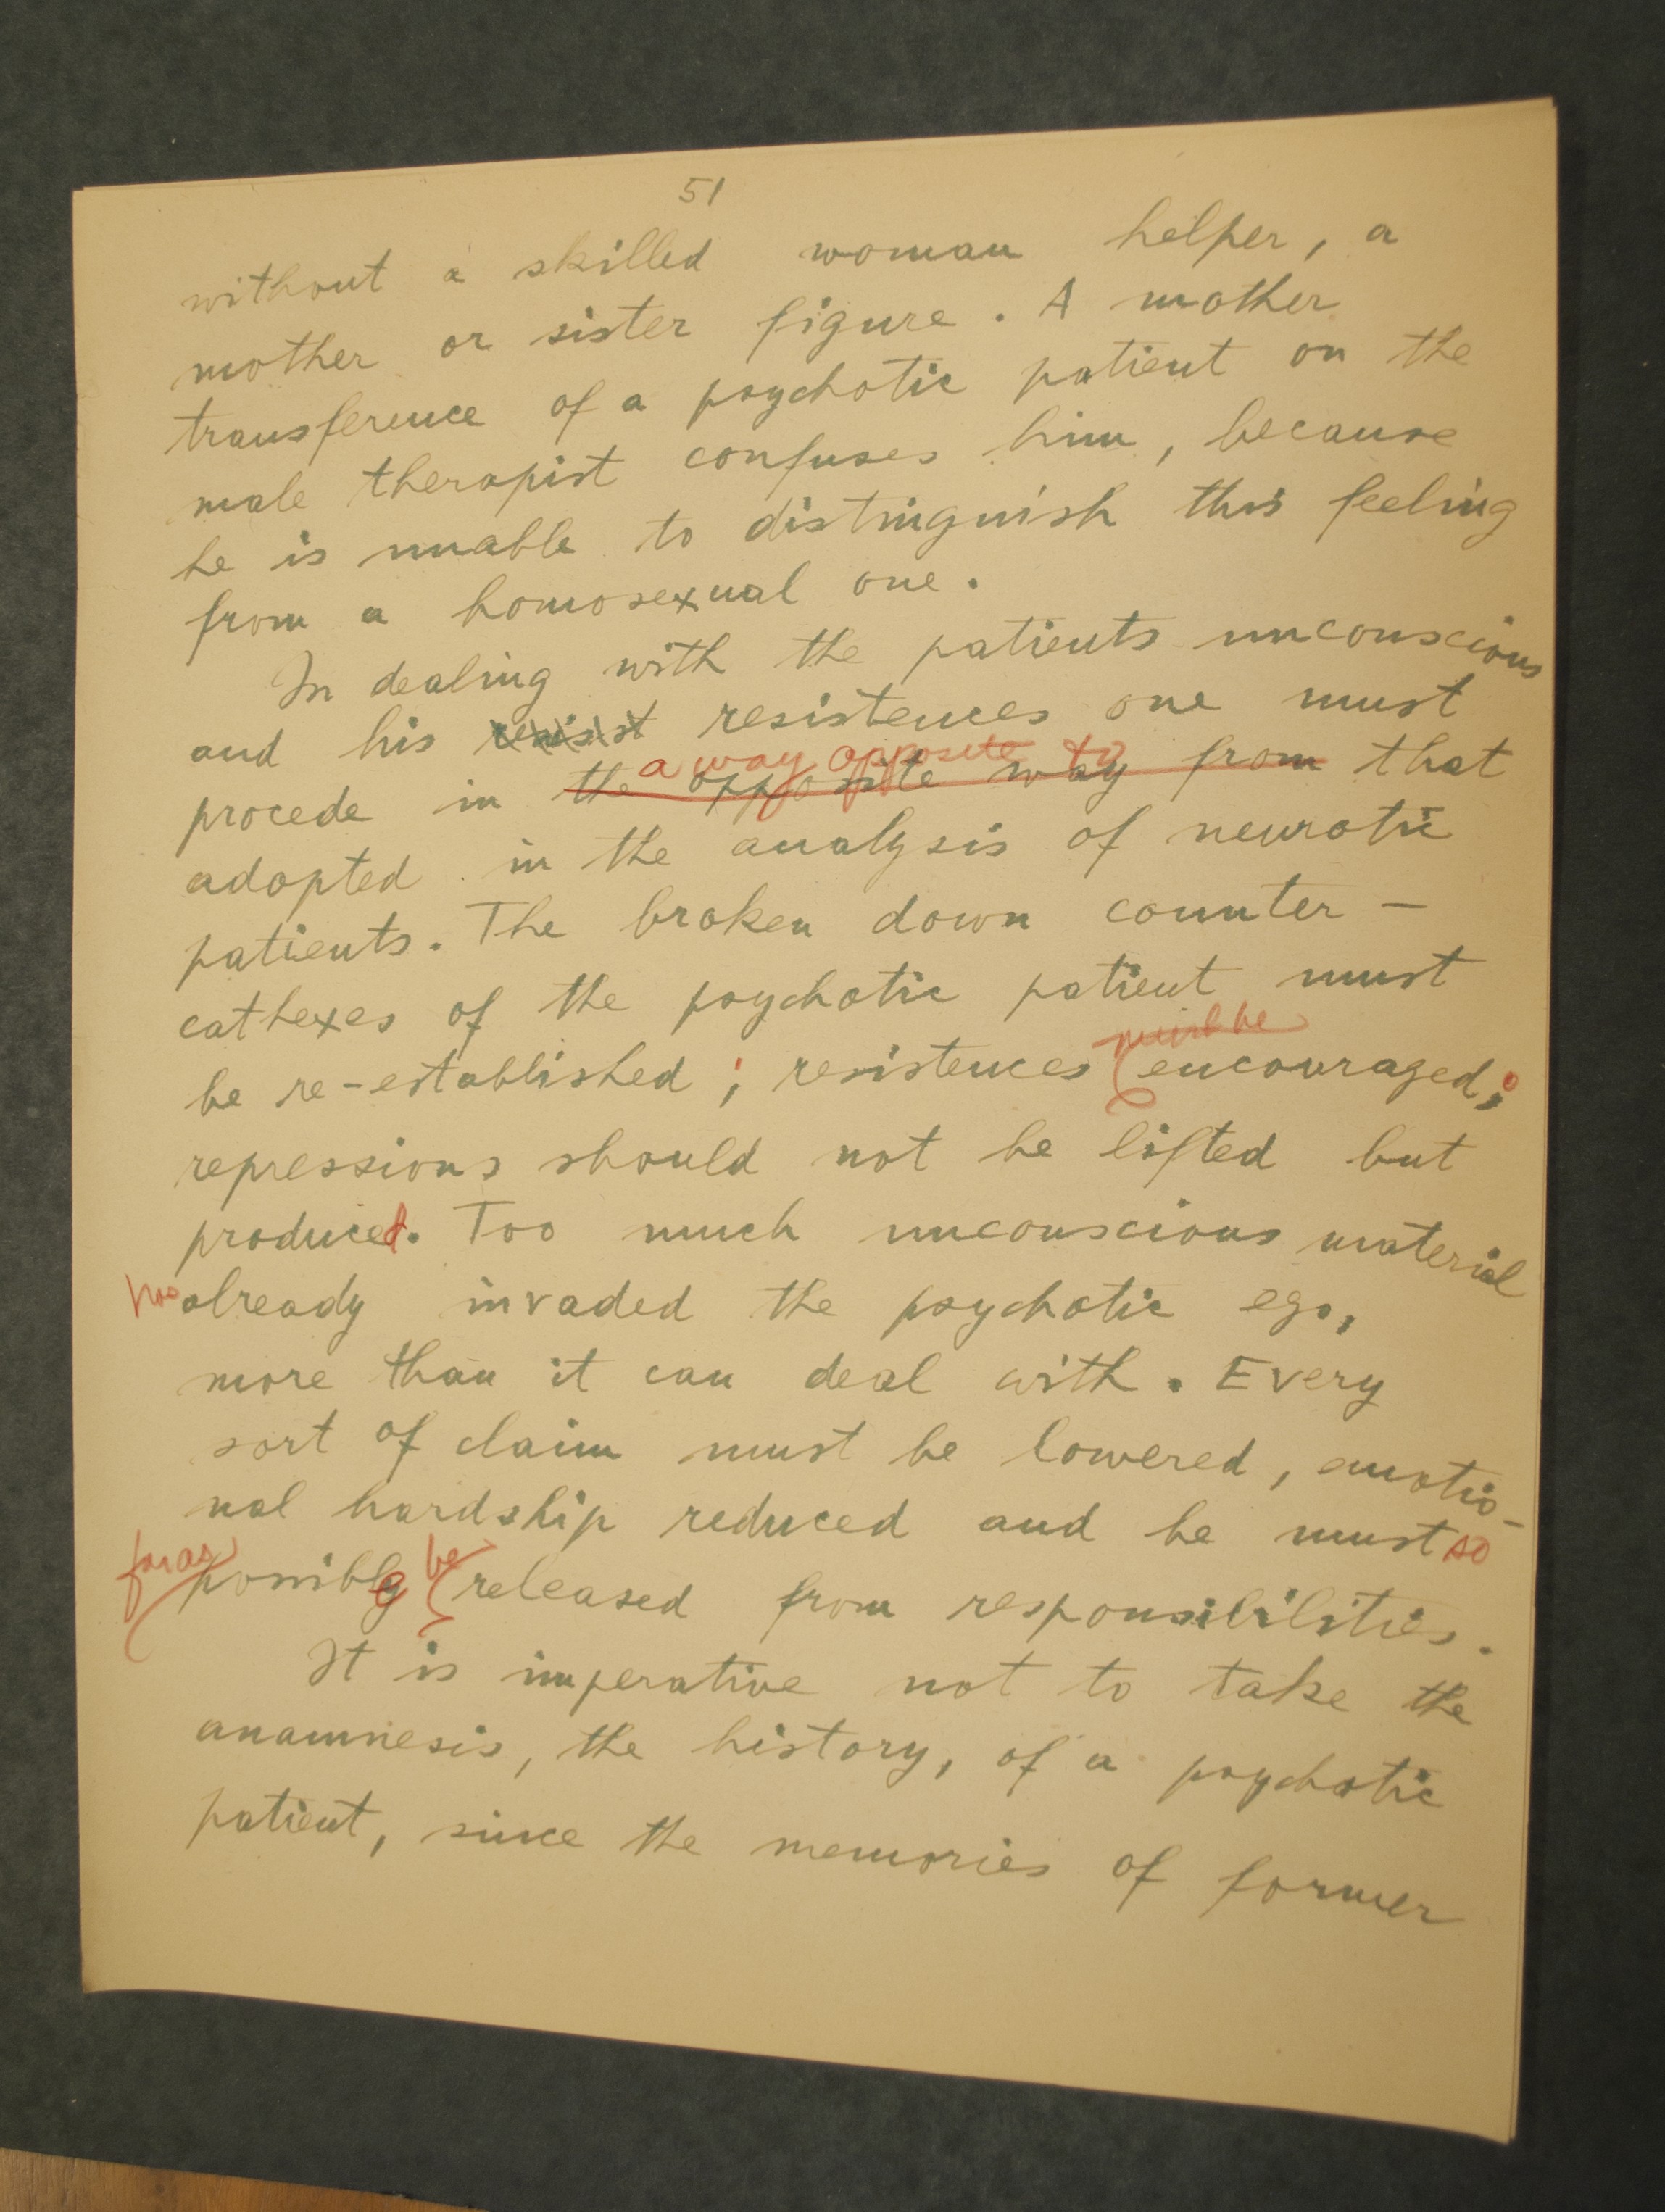 51
without a skilled woman helper, a
mother or sister figure. A mother
transference of a psychotic patient on the
male therapist confuses him, because
he is unable to distinguish this feeling
from a homosexual one.
In dealing with the patients unconscious
and his resist resistences one must
a way opposite to
procede in the opposite way from that
adopted in the analysis of neurotic
patients. The broken down counter-
cathexes of the psychotic patient must
must be
be re-established; resistences encouraged;
repressions should not be lifted but
produced. Too much unconscious material
has already invaded the psychotic ego,
more than it can deal with. Every
sort of claim must be lowered, emotio-
nal hardship reduced and he must so
far as possible be released from responsibilities.
It is imperative not to take the
anamnesis, the history, of a psychotic
patient, since the memories of former